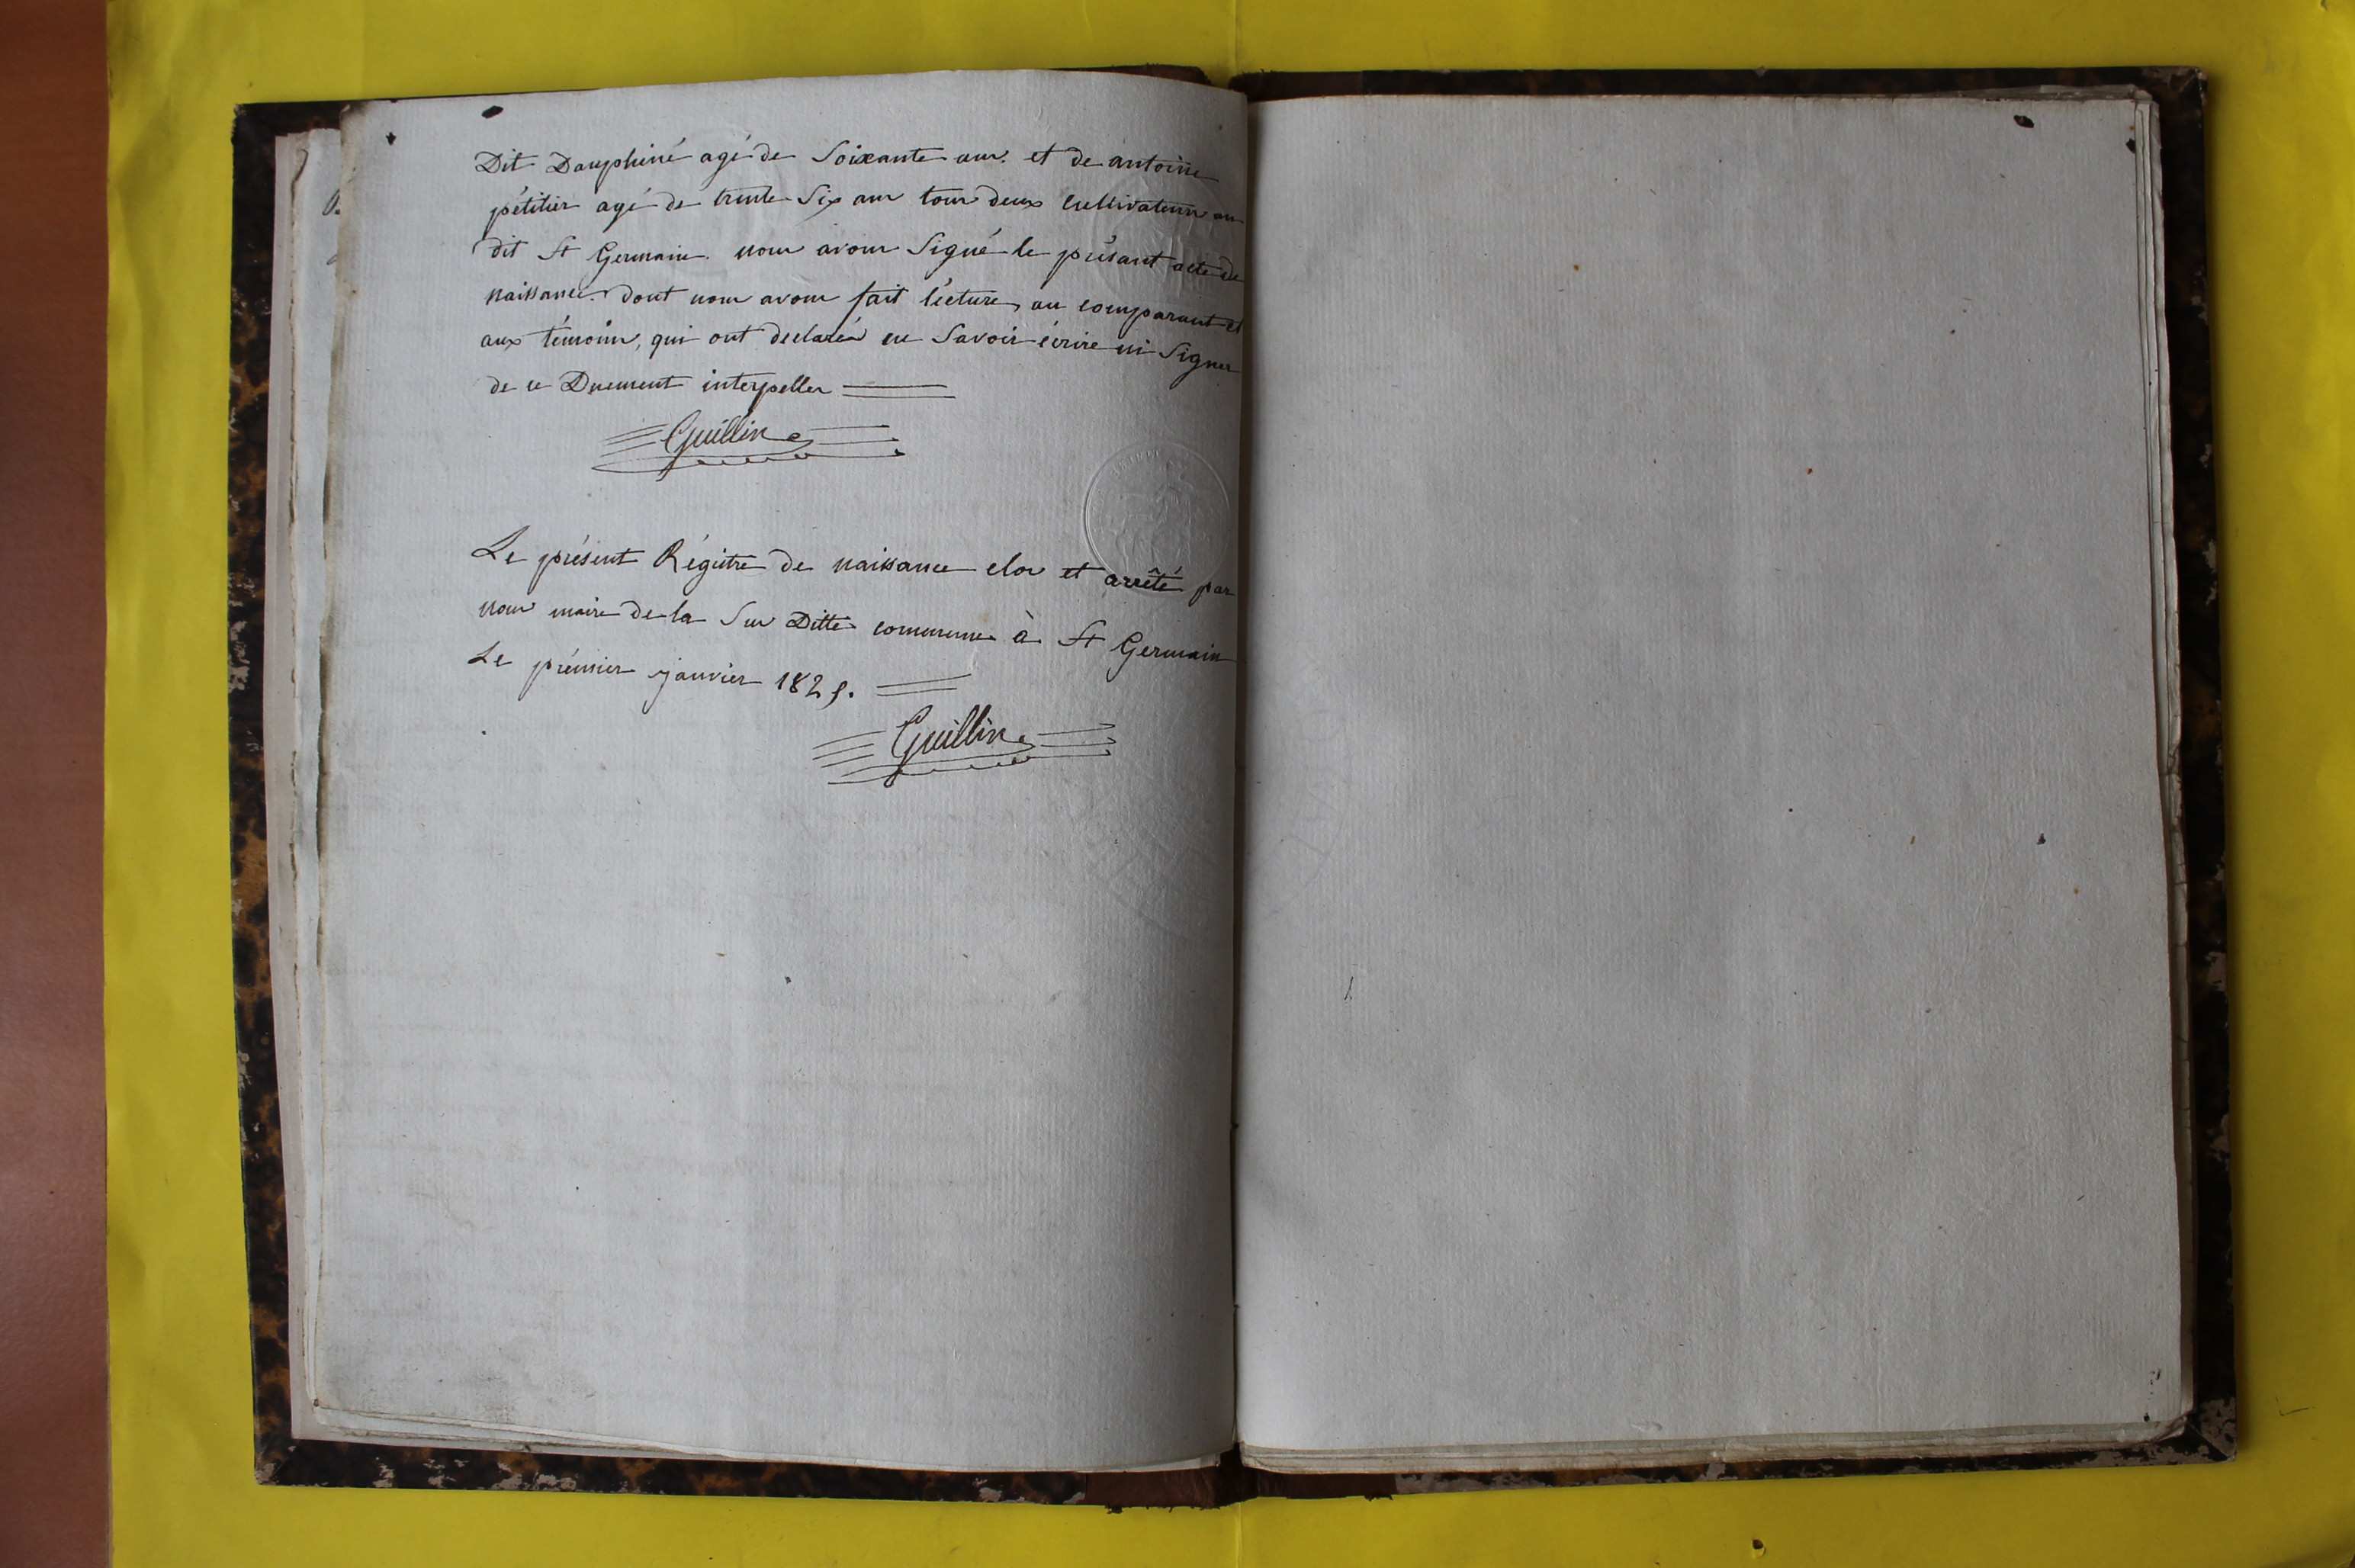 Dit Dauphiné agé de Soixante ans. et de antoine
pétitier agé de trente Six ans tous deux Cultivateurs au
dit St Germain. nous avons Signé le présant acte de
naissance. dont nous avons fait lécture, au comparant et
aux témoins, qui ont declarés ne Savoir écrire ni Signer
de ce Duement interpeller
Guillin
Le présent Régitre de naissance clos et arrêté par
nous maire de la Sus Ditte commune à St Germain
Le prémier janvier 1825.
Guillin